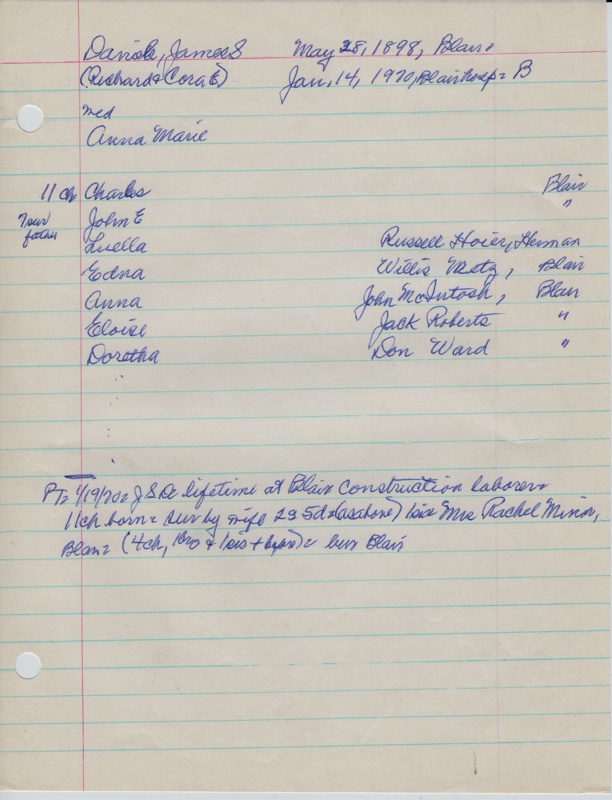 Daniels, James S May 28, 1898, Blair.
(Richard & Cora E) Jan, 14, 1970, Blair hosp = B
md
Anna Marie
11 ch Charles Blair
7 sur John E "
father
Luella Russell Hoier, Herman
Edna Willis Metz, Blair
Anna John McIntosh, Blair
Eloise Jack Roberts "
Doretha Don Ward "
PT= 1/19/70= J S D= lifetime at Blair construction laborer=
11 ch born= sur by wife 2s 5d= (as above) sis Mrs Rachel Minor,
Blair= (4 ch, 1 bro & 1 sis + )= bur Blair